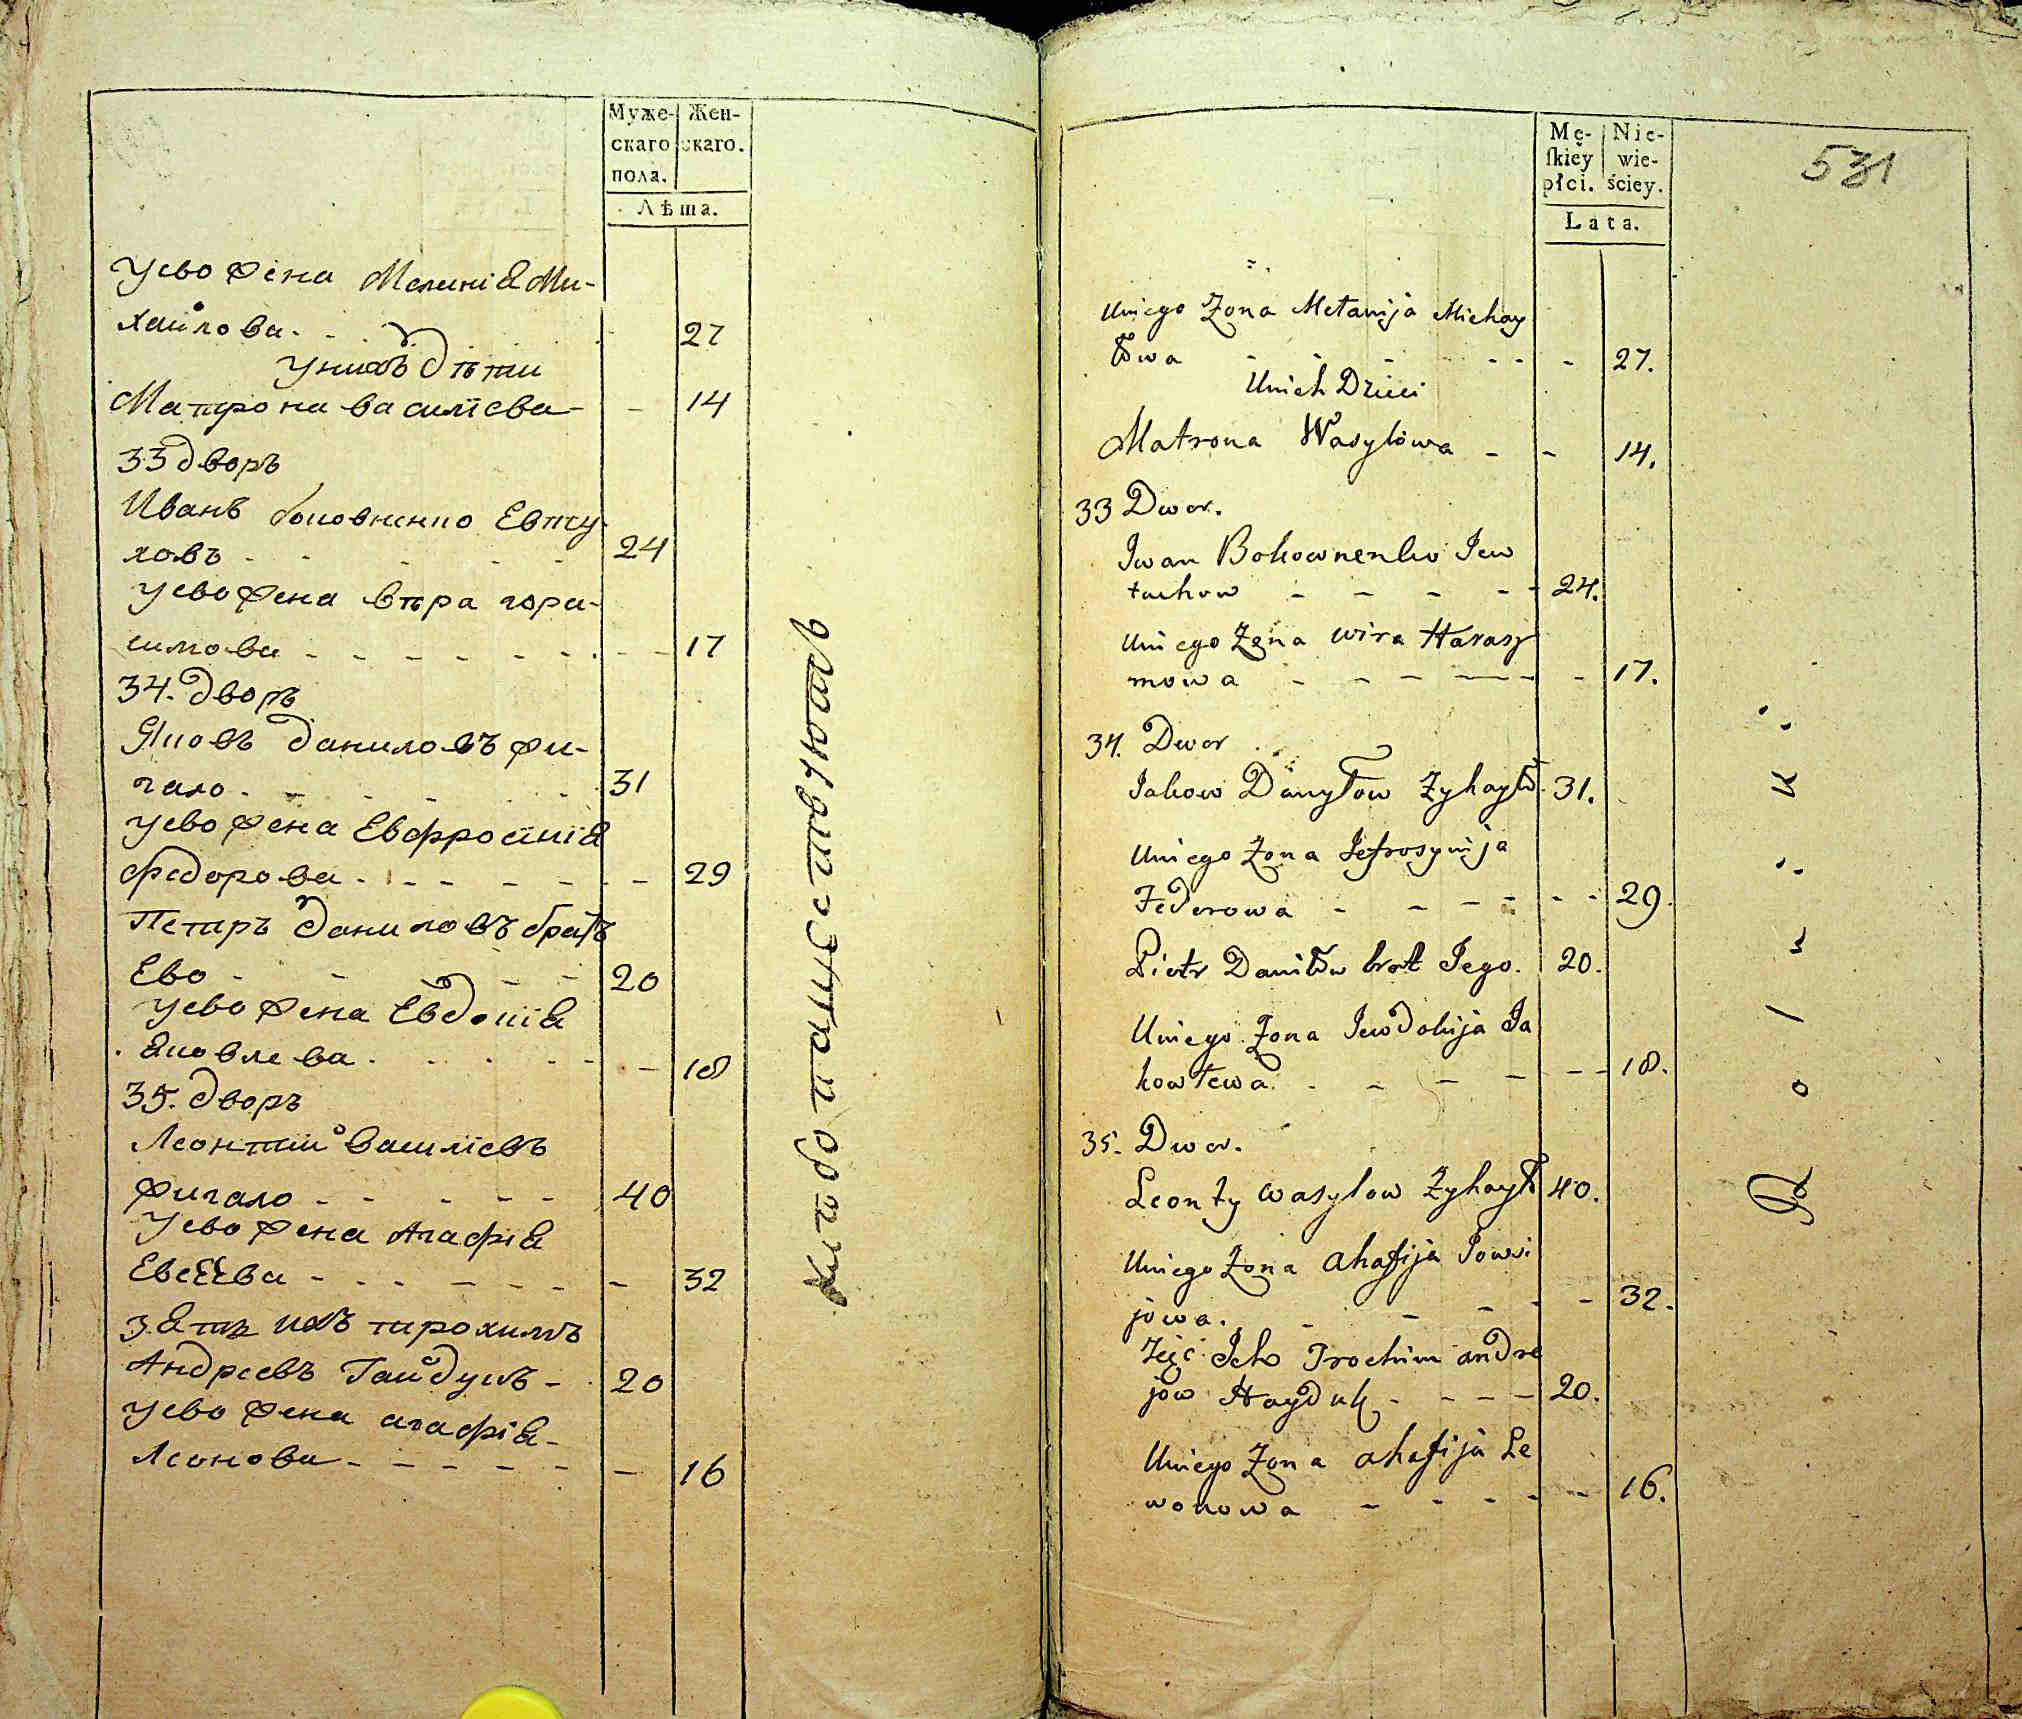 Муже- Жен-
скаго скаго.
пола.
Лѣта.
Уево жена Меланіѧ Ми-
хаилова - 27
Унихъ дѣти
Матрона василіева - - 14
33 дворъ
Иванъ боковненко Евту-
ховъ - - - - - 24
Уево жена вѣра гора-
симова - - - - - - - - 17
34. дворъ
Яковъ даниловъ жи-
гало - - - - - 31
Уево жена Евфросиніѧ
федорова - - - - - - - 29
Петръ даниловъ братъ
Ево - - - - 20
Уево жена Евдокіѧ
Яковлева - - - - - - 18
35. дворъ
Леонтій василіевъ
жигало - - - - - 40
Уево жена Агафіѧ
Евсѣева - - - - - - - 32
Зѧть ихъ трохимъ
Андреевъ Гайдукъ - 20
Уево жена агафіѧ
Леонова - - - - - - 16
Mę- Nie-
skiey wie-
płci. ściey.
Lata.
531
Uniego Zona Mełanija Michay
łowa - - - - - - 27.
Unich Dzieci
Matrona Wasylowa - - 14.
33 Dwor.
Iwan Bokownenko Iew
tuchow - - - - - 24.
Uniego Zona Wira Harasy
mowa - - - - - - 17.
34. Dwor
Iakow Danyłow Zyhayło 31.
Uniego Zona Iefrosynija
Fedorowa - - - - - - 29.
Piotr Daniłow brat Iego. 20.
Uniego Zona Iewdokija Ia
kowlewa. - - - - - - 18.
35. Dwor.
Leonty Wasylow Zyhayło 40.
Uniego Zona Ahafija Iowsi
jowa. - - - - - 32.
Zięć Ich Trochim Andre
jow Hayduk - - - - 20.
Uniego Zona Ahafija Le
wonowa - - - - - 16.